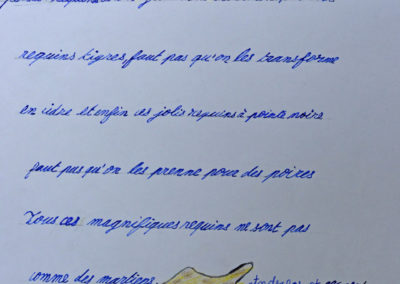 requins tigres, faut pas qu'on les transforme
en cidre et enfin ces jolis requins à pointe noire
faut pas qu'on les prenne pour des poires
Tous ces magnifiques requins ne sont pas
comme des martiens